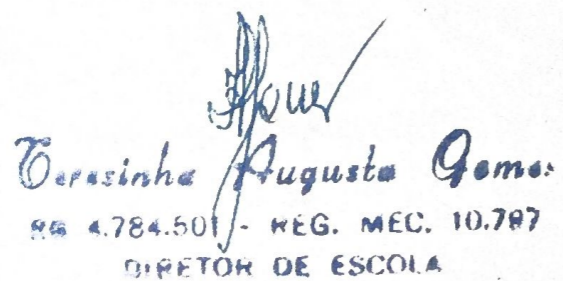 Teresinha Augusta Gomes
RG 4.784.501 - REG. MEC. 10.797
DIRETOR DE ESCOLA